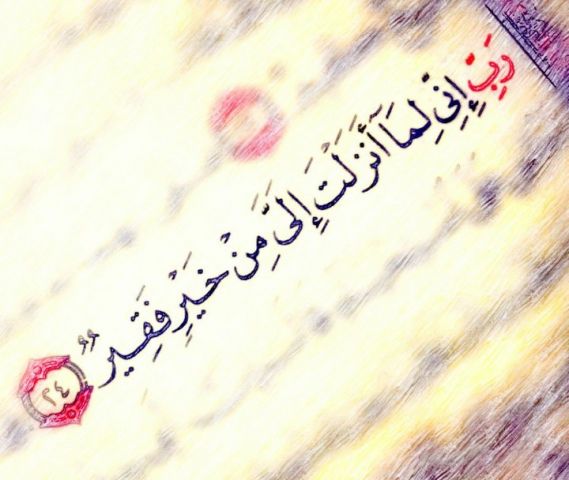 رَبِّ إِنِّي لِمَا أَنْزَلْتَ إِلَيَّ مِنْ خَيْرٍ فَقِيرٌ ٢٤